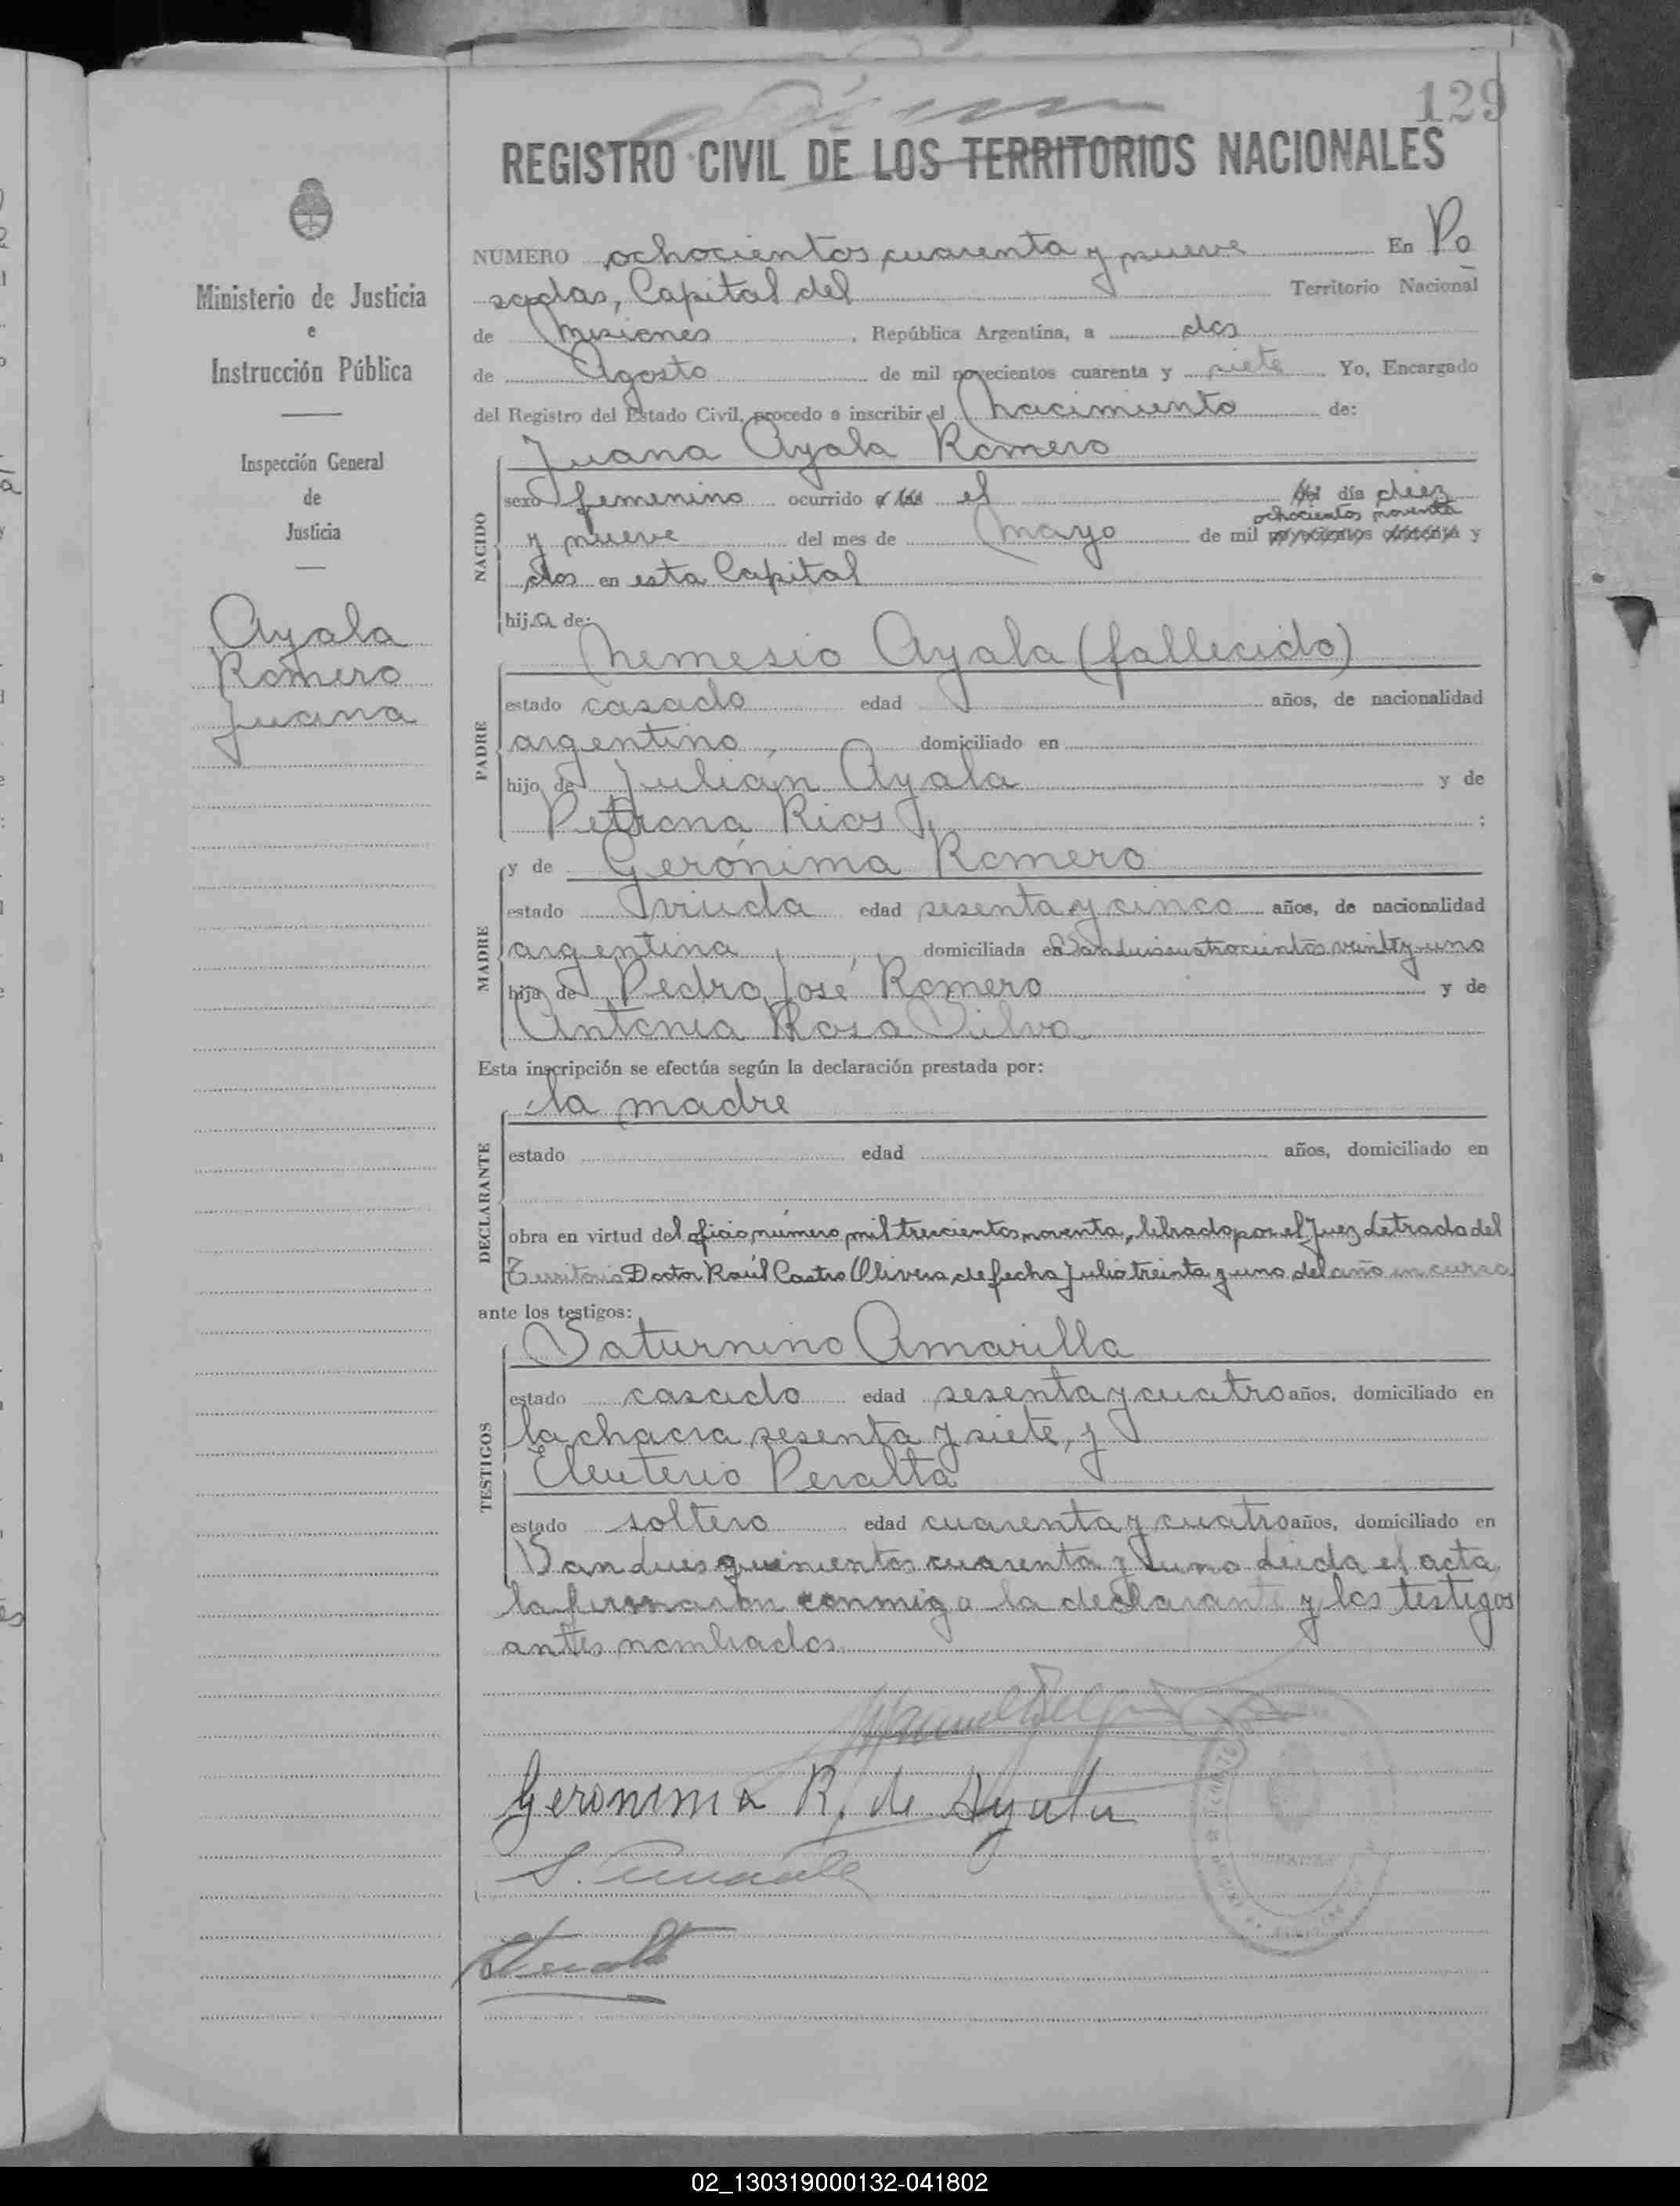 129
REGISTRO CIVIL DE LOS TERRITORIOS NACIONALES
Ministerio de Justicia
e
Instrucción Pública
Inspección General
de
Justicia
Ayala
Romero
Juana
NUMERO ochocientos cuarenta y nueve En Po
sadas, Capital del Territorio Nacional
de Misiones, República Argentina, a dos
de Agosto de mil novecientos cuarenta y siete Yo, Encargado
del Registro del Estado Civil, procedo a inscribir el Nacimiento de:
Juana Ayala Romero
NACIDO
sexo femenino ocurrido a las el del día diez
ochocientos noventa
y nueve del mes de Mayo de mil novecientos cuarenta y
dos en esta Capital
hija de:
Nemesio Ayala (fallecido)
PADRE
estado casado edad años, de nacionalidad
argentino, domiciliado en
hijo de Julián Ayala y de
Petrona Rios;
MADRE
y de Gerónima Romero
estado viuda edad sesenta y cinco años, de nacionalidad
argentina, domiciliada en San Luis cuatrocientos veinte y uno
hija de Pedro José Romero y de
Antonia Rosa Silva
Esta inscripción se efectúa según la declaración prestada por:
la madre
DECLARANTE
estado edad años, domiciliado en
obra en virtud del oficio número mil trescientos noventa, librado por el Juez Letrado del
Territorio Doctor Raúl Castro Olivera, de fecha Julio treinta y uno del año en curso
ante los testigos:
Saturnino Amarilla
TESTIGOS
estado casado edad sesenta y cuatro años, domiciliado en
la chacra sesenta y siete, y
Eleuterio Peralta
estado soltero edad cuarenta y cuatro años, domiciliado en
San Luis quinientos cuarenta y uno Leida el acta
la firmaron conmigo la declarante y los testigos
antes nombrados.
Geronima R. de Ayala
02_130319000132-041802